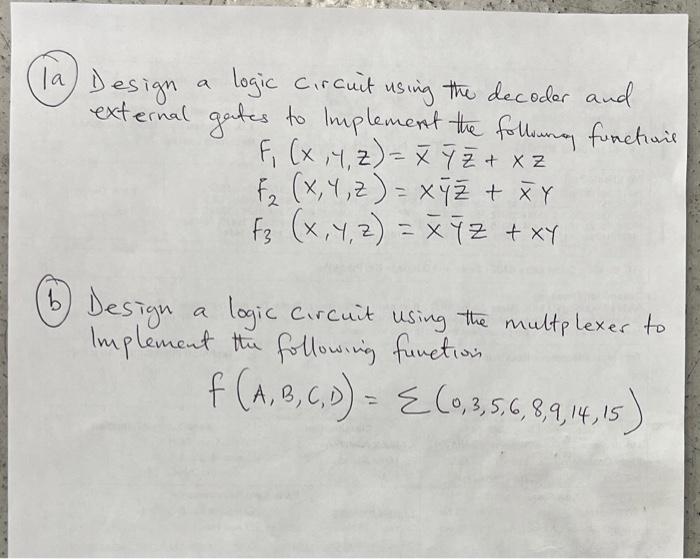 1a) Design a logic circuit using the decoder and
external gates to Implement the following functions
F₁ (X,Y,Z) = X̄ Ȳ Z̄ + X Z
F₂ (X,Y,Z) = X Ȳ Z̄ + X̄ Y
F₃ (X,Y,Z) = X̄ Ȳ Z + XY
b) Design a logic circuit using the multplexer to
Implement the following function
f (A,B,C,D) = Σ (0,3,5,6,8,9,14,15)